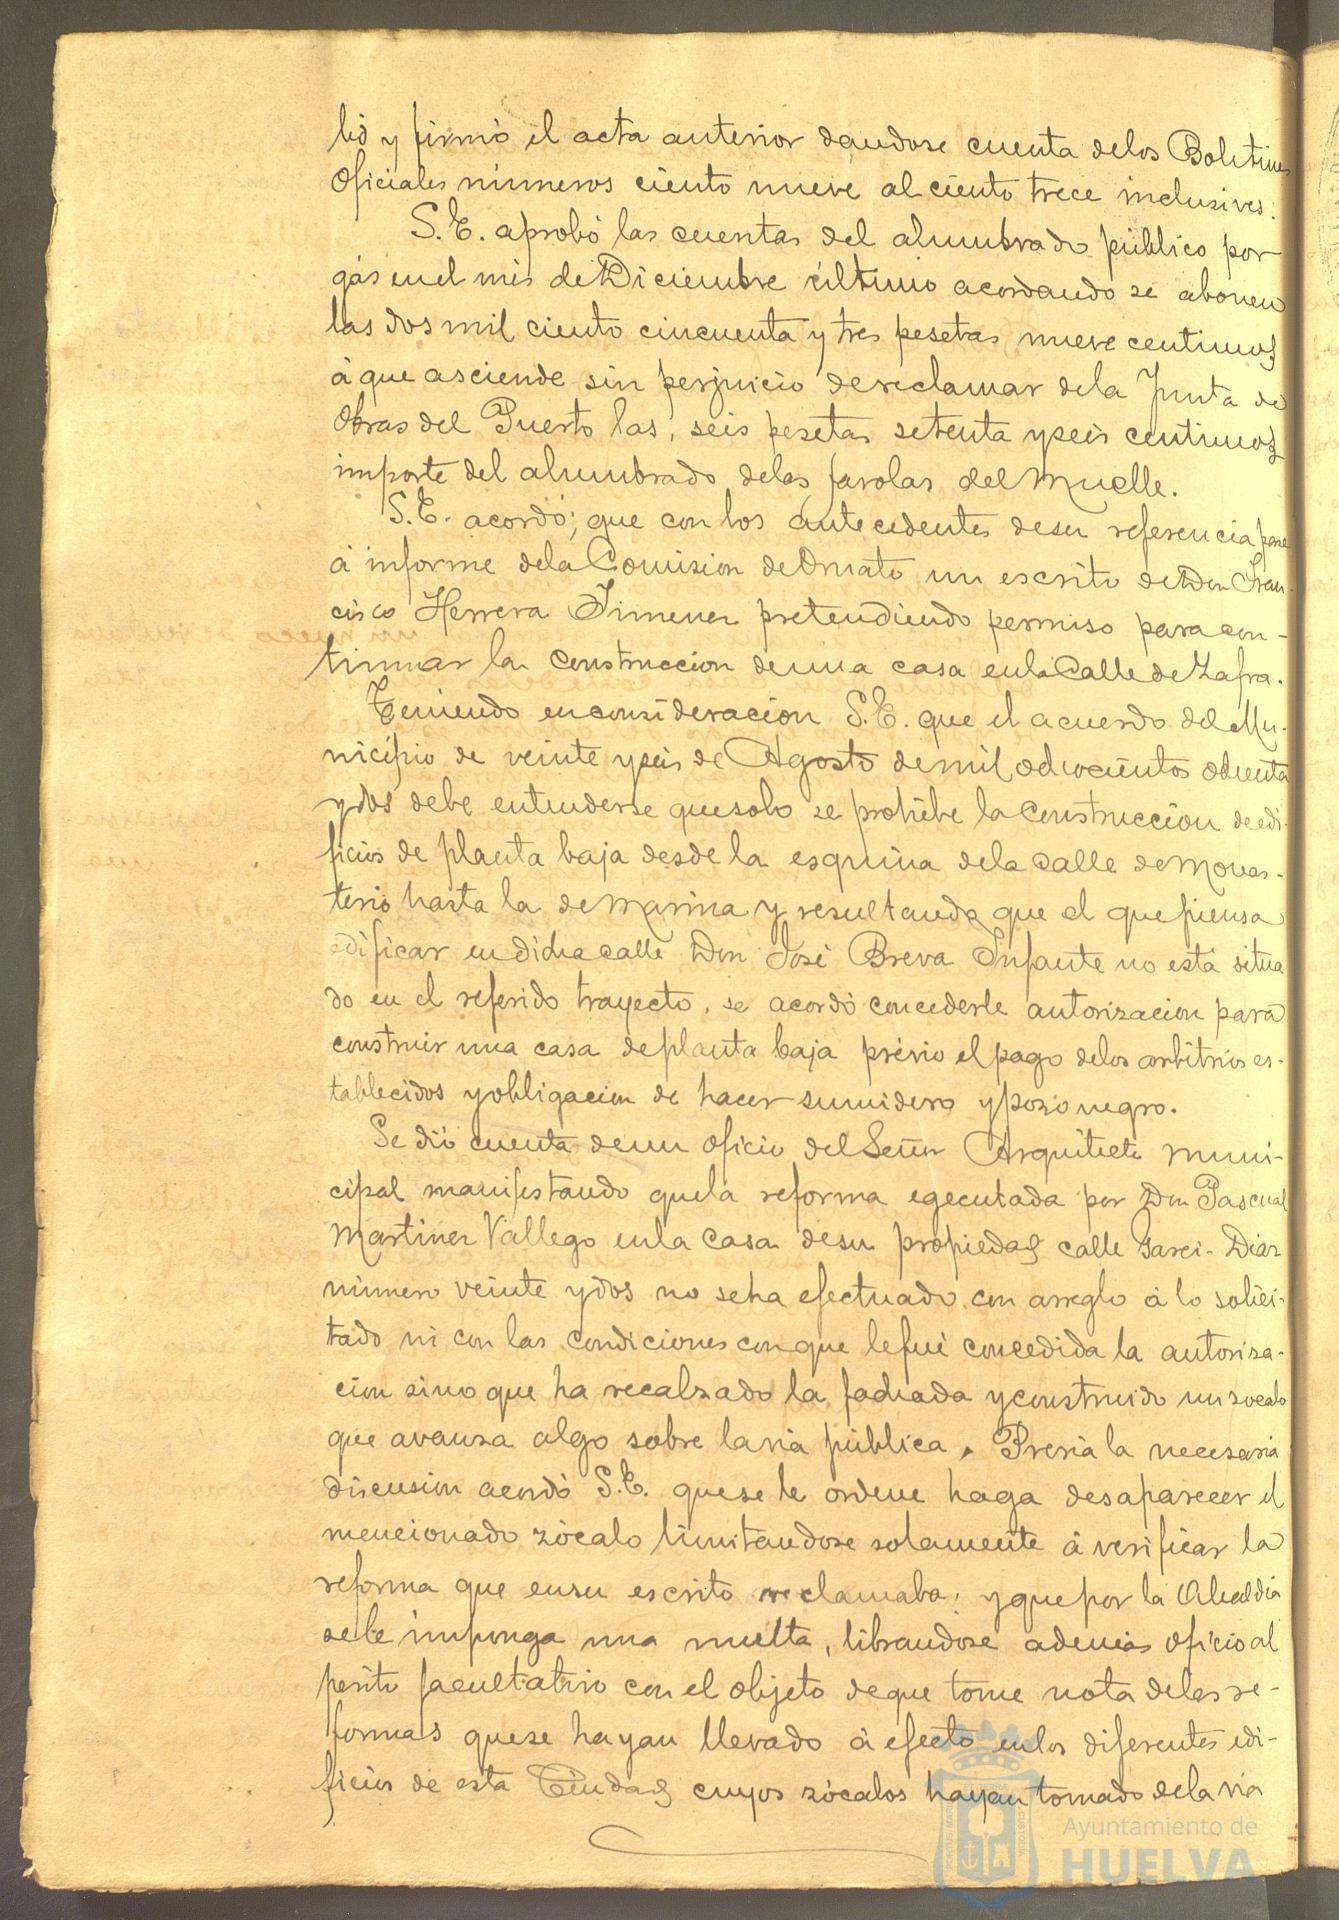 lió y firmó el acta anterior dandose cuenta delos Boletines
Oficiales números ciento nueve al ciento trece inclusives.
S.E. aprobó las cuentas del alumbrado público por
gás en el mes de Diciembre último acordando se abonen
las dos mil ciento cincuenta y tres pesetas nueve centimos
á que asciende sin perjuicio de reclamar dela Junta de
Obras del Puerto las, seis pesetas setenta y seis centimos
importe del alumbrado delas farolas del Muelle.
S.E. acordó; que con los antecedentes desu referencia pase
á informe dela Comision de Ornato un escrito de Don Fran-
cisco Herrera Jimenez pretendiendo permiso para con-
tinuar la construccion de una casa en la Calle de Zafra.
Teniendo en consideracion S.E. que el acuerdo del Mu-
nicipio de veinte y seis de Agosto de mil ochocientos ochenta
y dos debe entenderse que solo se prohibe la construccion de edi-
ficios de planta baja desde la esquina dela calle de Monas-
terio hasta la de Marina y resultando que el que piensa
edificar en dicha calle Don José Breva Infante no está situa
do en el referido trayecto, se acordó concederle autorizacion para
construir una casa de planta baja prévio el pago delos arbitrios es-
tablecidos y obligacion de hacer sumidero y pozo negro.
Se dió cuenta de un oficio del Señor Arquitecto muni-
cipal manifestando que la reforma egecutada por Don Pascual
Martinez Vallego en la casa desu propiedad calle Garci-Diaz
número veinte y dos no se ha efectuado con arreglo á lo solici-
tado ni con las condiciones con que le fué concedida la autoriza-
cion sino que ha recalzado la fachada y construido un zocalo
que avanza algo sobre la via pública. Prévia la necesaria
discusion acordó S.E. que se le ordene haga desaparecer el
mencionado zócalo limitandose solamente á verificar la
reforma que en su escrito reclamaba, y que por la Alcaldia
se le imponga una multa, librandose además oficio al
perito facultativo con el objeto de que tome nota delas re-
formas que se hayan llevado á efecto en los diferentes edi-
ficios de esta Ciudad cuyos zócalos hayan tomado dela via
Ayuntamiento de
HUELVA